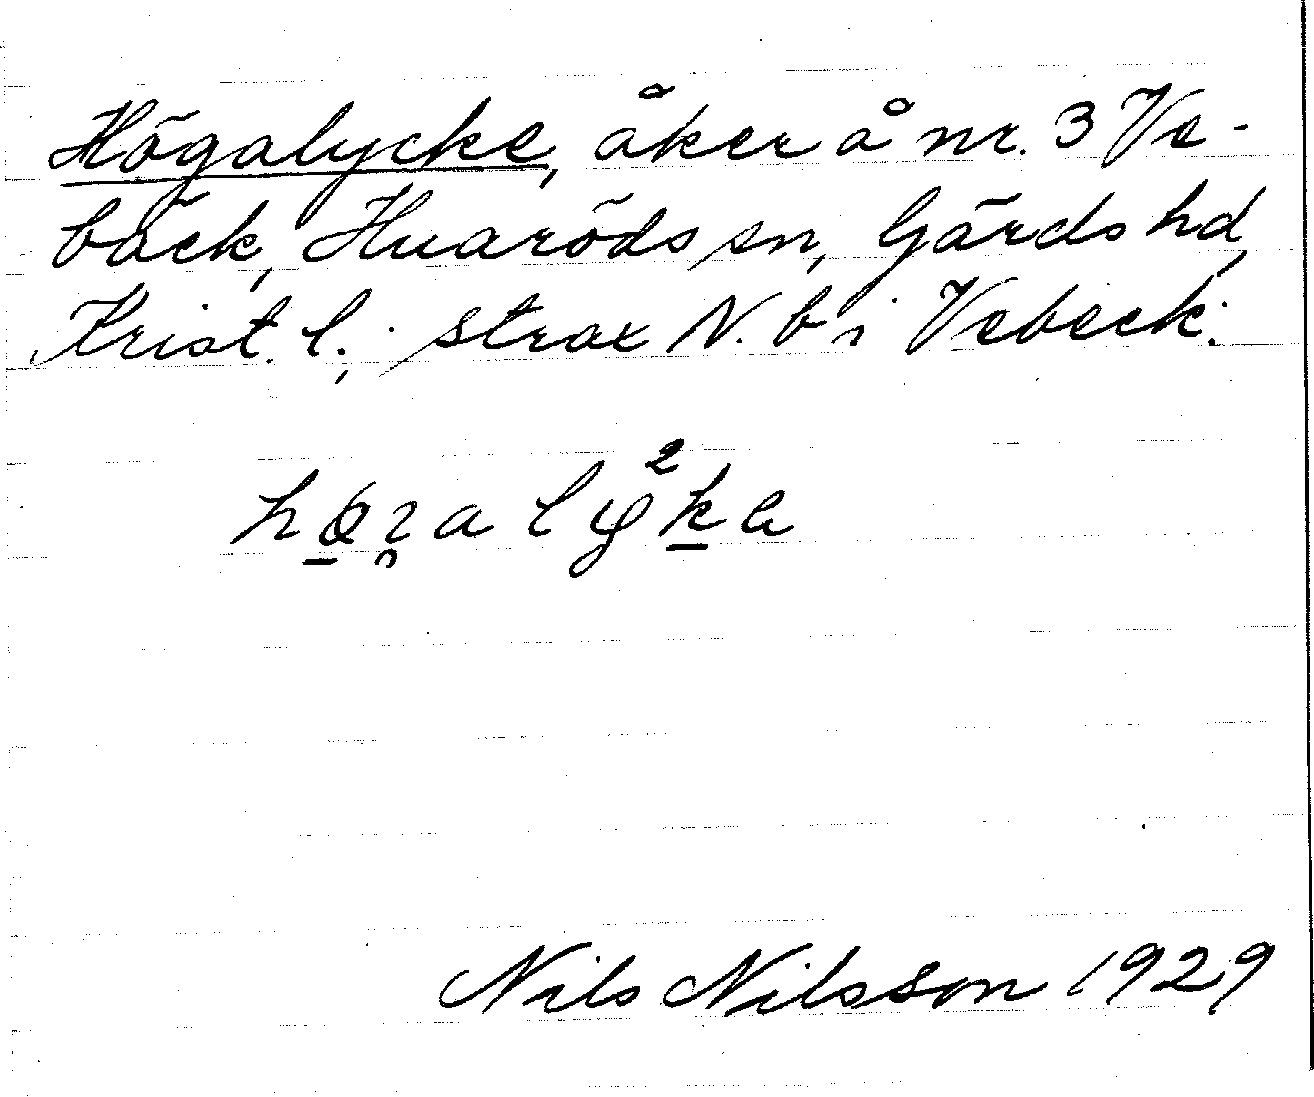 Högalycke, åker å nr. 3 Ve-
bäck, Huaröds sn, Gärds hd,
Krist. l.; strax N. b i Vebeck.
Nils Nilsson 1929